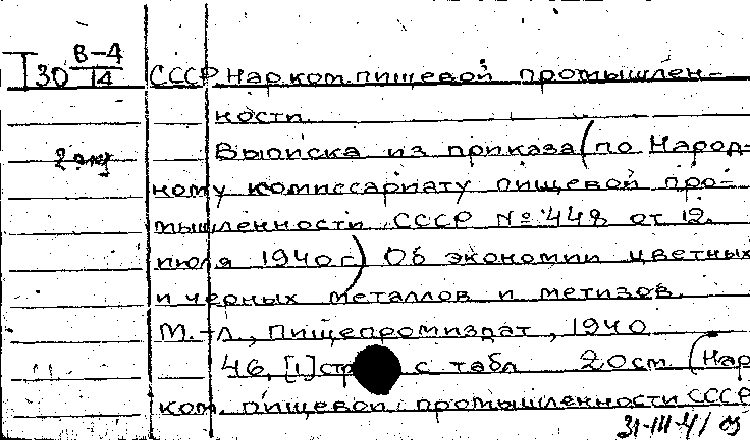 I30 В-4/14 СССР Нар. ком. пищевой промышлен-
ности.
2 экз Выписка из приказа (по Народ-
ному комиссариату пищевой про-
мышленности СССР № 448 от 12.
июля 1940 г.) Об экономии цветных
и черных металлов и метизов.
М.-Л., Пищепромиздат, 1940
46, [1] стр с табл 20 см (Нар
ком. пищевой промышленности СССР